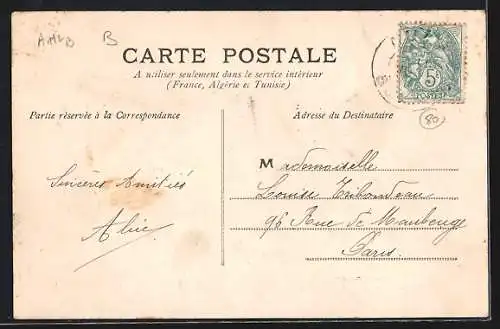 AHVB
B
CARTE POSTALE
A utiliser seulement dans le service intérieur
(France, Algérie et Tunisie)
5
POSTES
80
Partie réservée à la Correspondance
Adresse du Destinataire
Sincères Amitiés
Alice
Mademoiselle
Louise Tribondeau
96 Rue de Maubeuge
Paris.